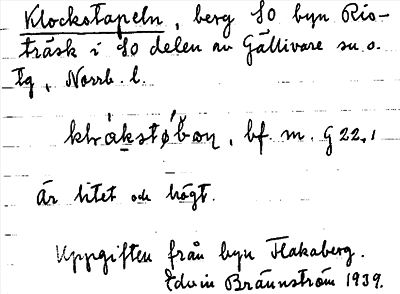 Klockstapeln, berg SO byn Rio-
träsk i SO delen av Gällivare sn o.
tg, Norrb. l.
bf. m. G 22,1
Är litet och högt.
Uppgiften från byn Flakaberg.
Edvin Brännström 1939.